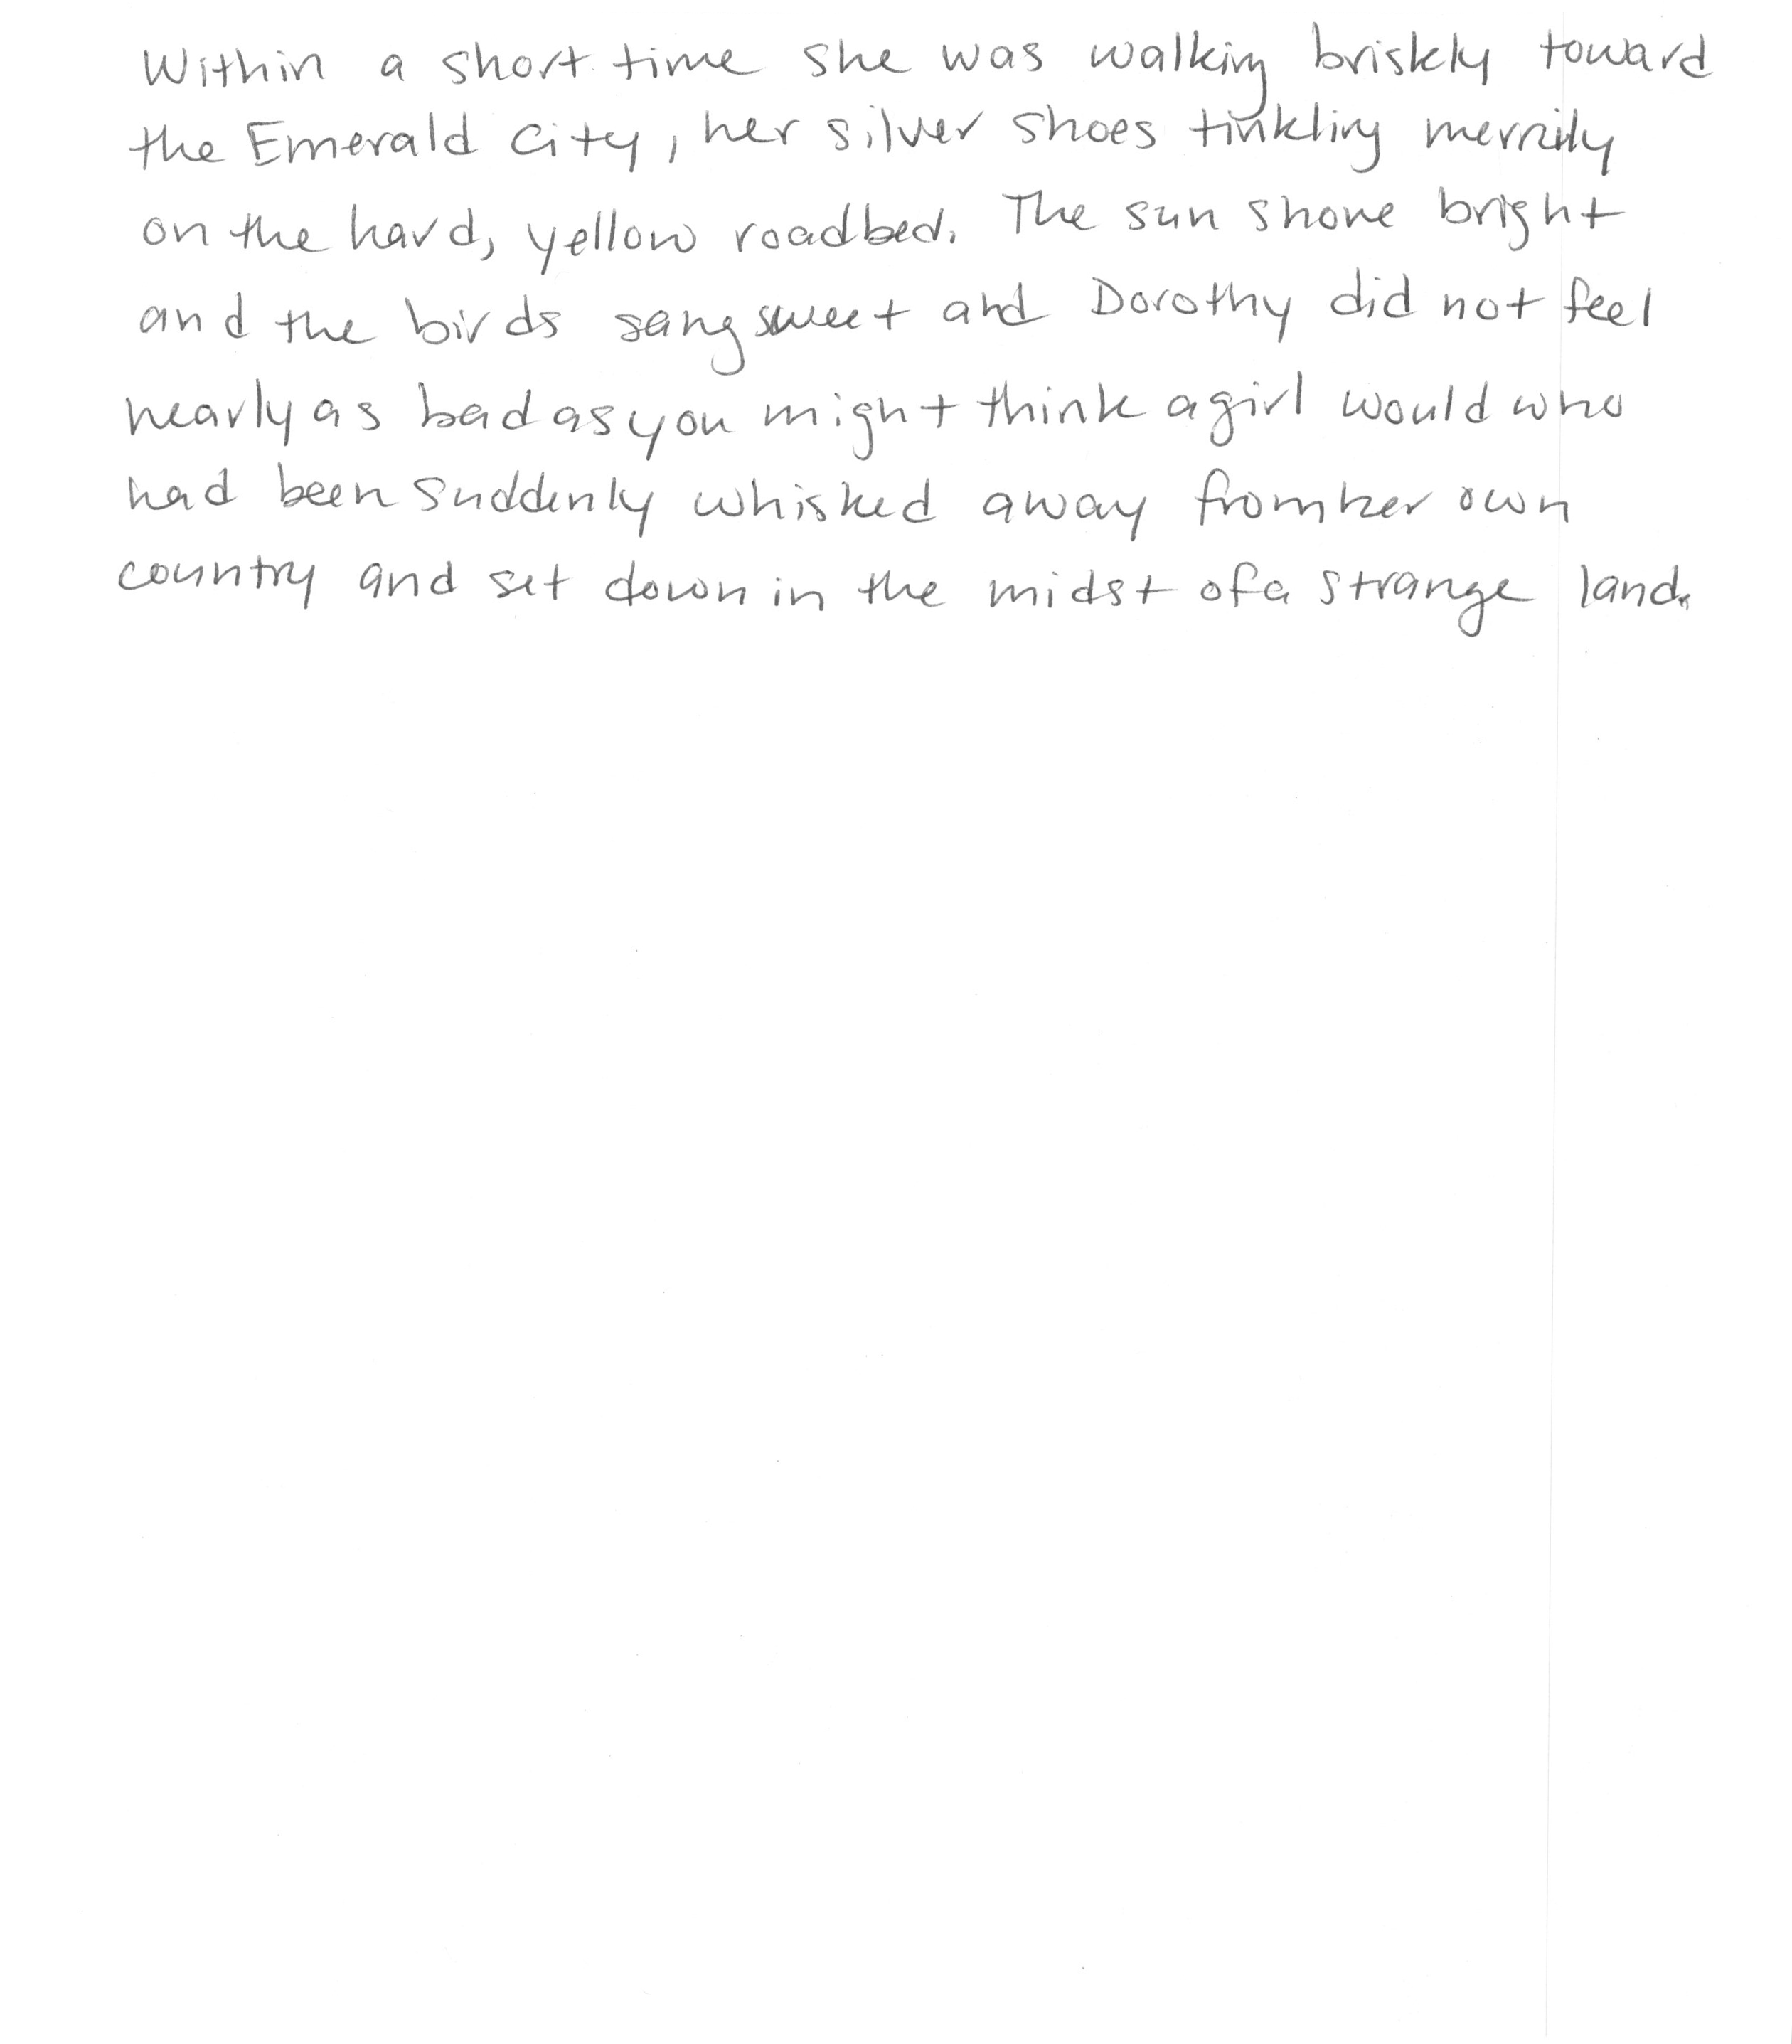 Within a short time she was walking briskly toward
the Emerald City, her silver shoes tinkling merrily
on the hard, yellow roadbed. The sun shone bright
and the birds sang sweet and Dorothy did not feel
nearly as bad as you might think a girl would who
had been suddenly whisked away from her own
country and set down in the midst of a strange land.